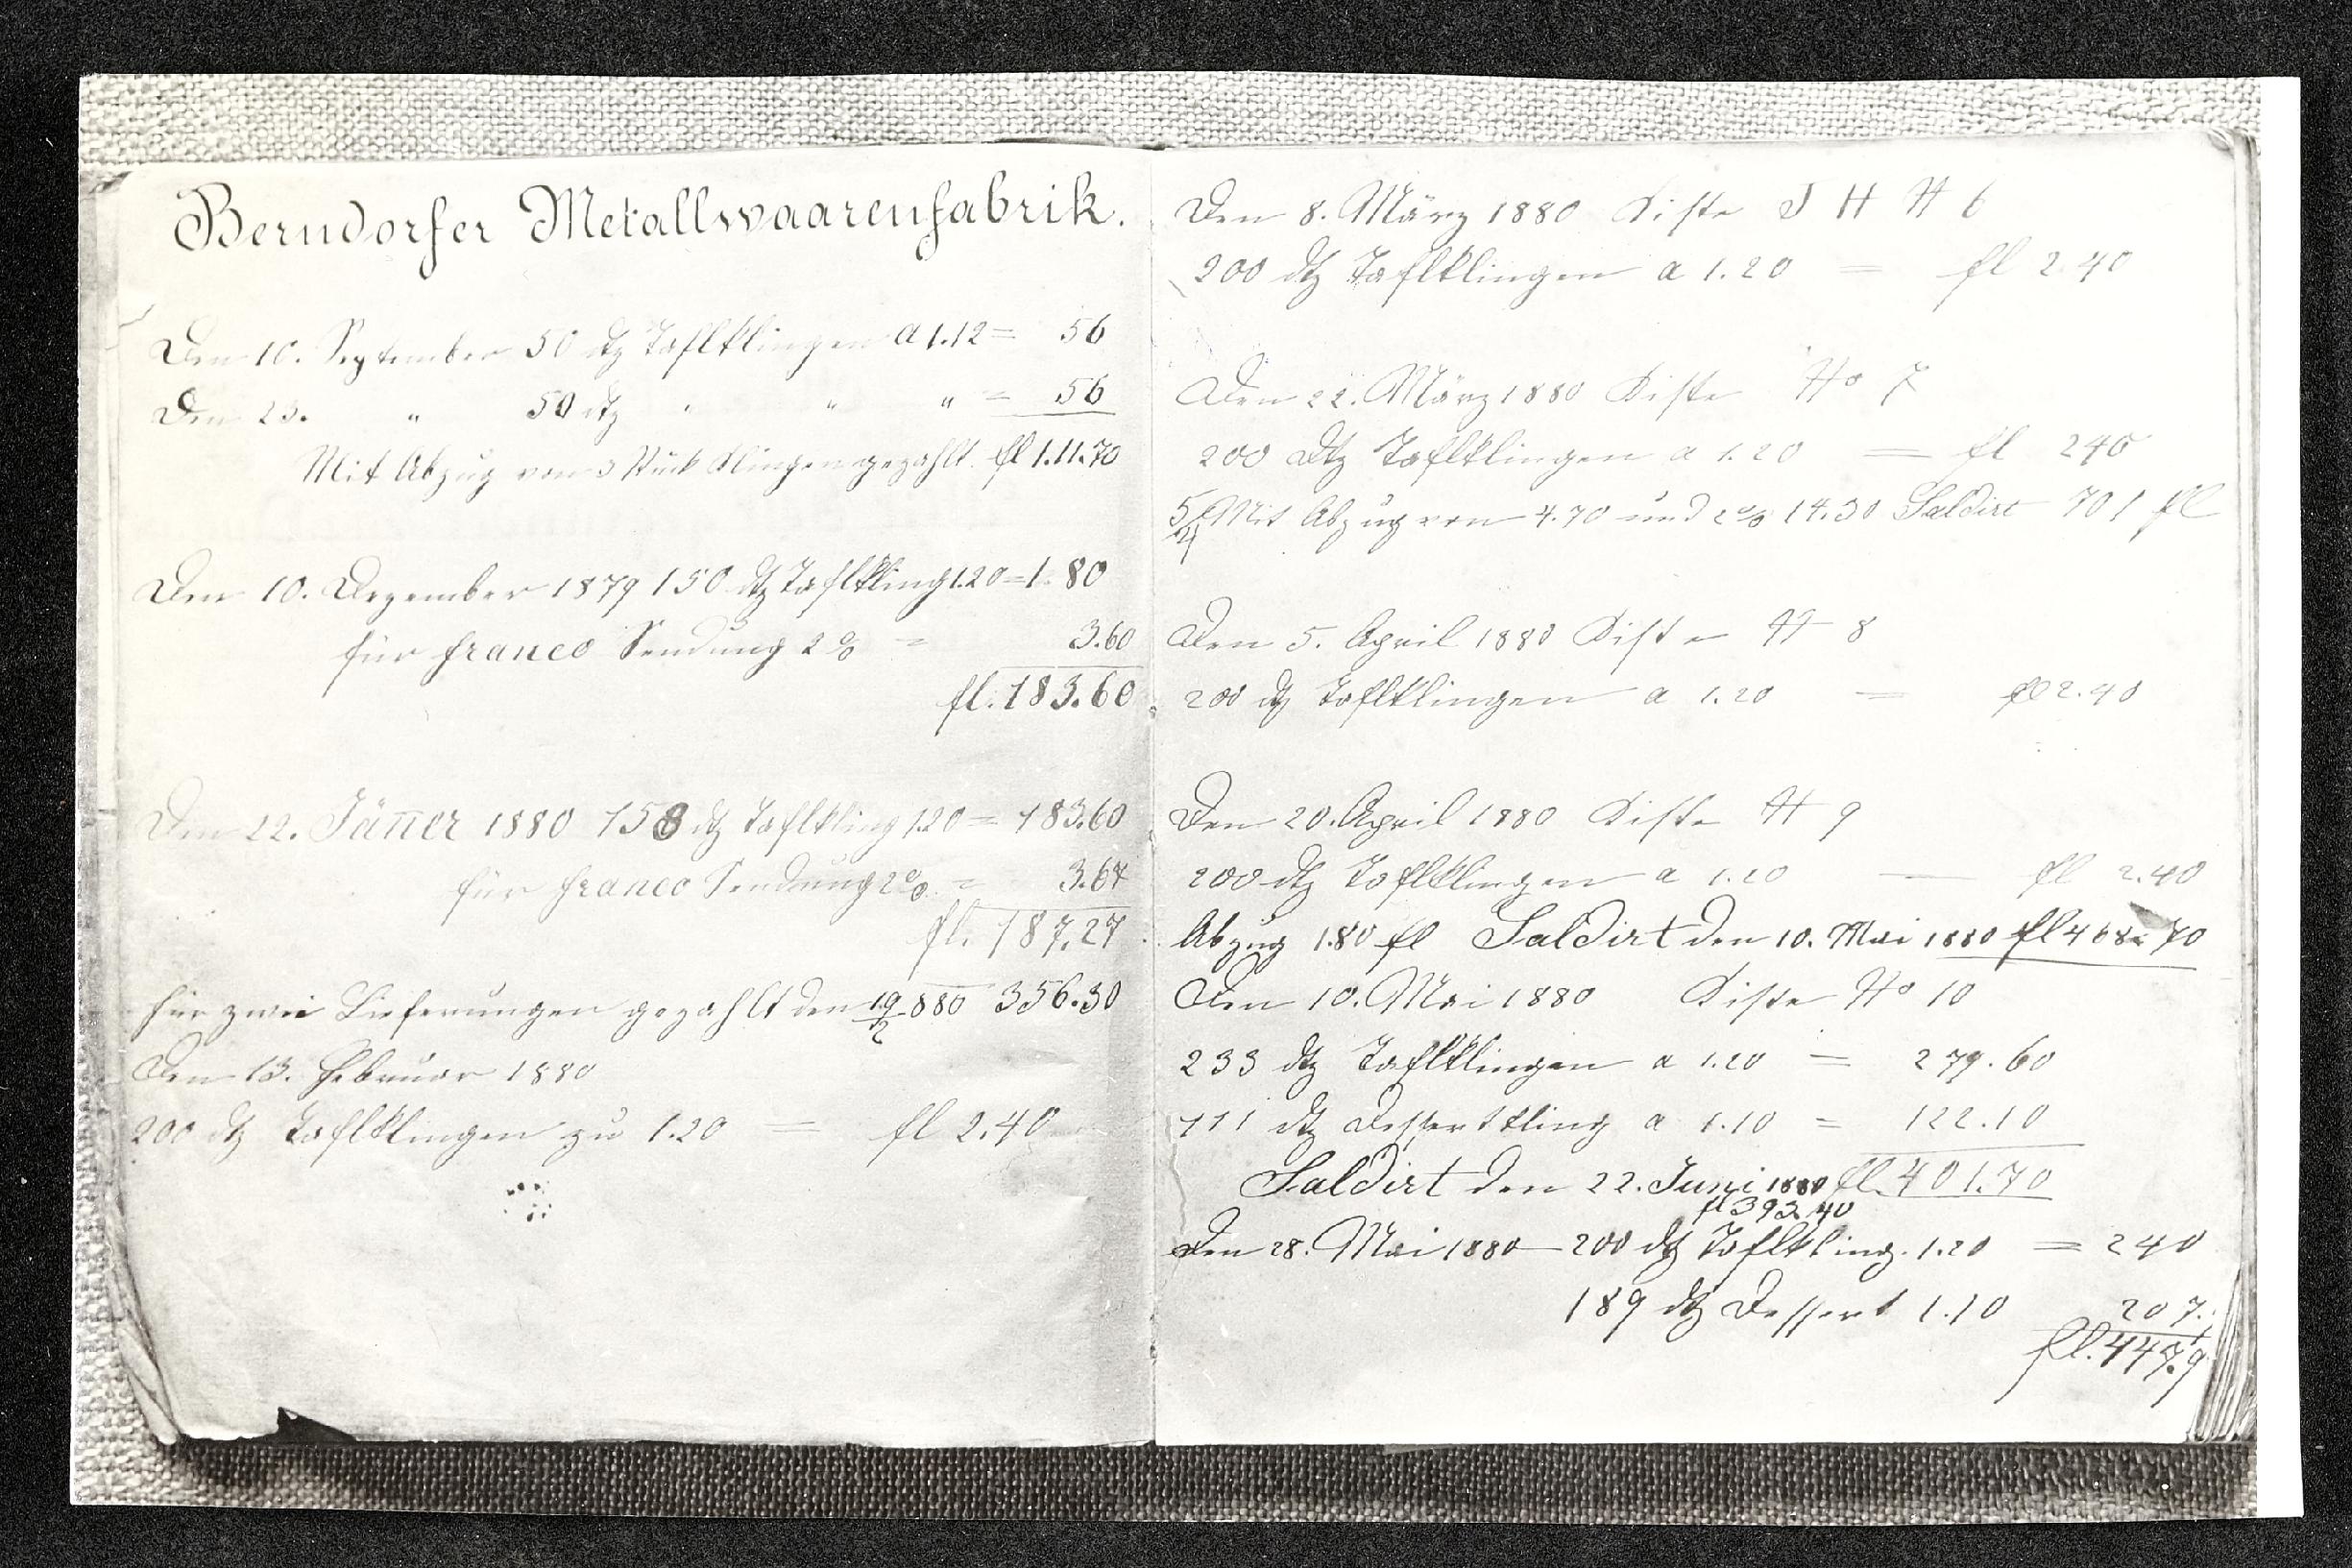 Berndorfer Metallwaarenfabrik.
Den 10. September 50 dtz Taflklingen a 1.12 = 56
Den 23. " 50 dtz " " " = 56
Mit Abzug von 3 Stück Klingen gezahlt. fl 1.11.70
Den 10. Dezember 1879 150 dtz Taflkling 1.20 = 1.80
für franco Sendung 2% = 3.60
fl. 183.60
Den 22. Jänner 1880 153 dtz Taflkling 1.20 = 183.60
für franco Sendung 2% = 3.67
fl. 187.27
für zwei Lieferungen gezahlt den 19/2 880 356.30
Den 13. Februar 1880
200 dtz Taflklingen zu 1.20 = fl 2.40
Den 8. März 1880 Kiste J H N 6
200 dtz Taflklingen a 1.20 = fl 2.40
Den 22. März 1880 Kiste No 7
200 dtz Taflklingen a 1.20 = fl 240
5/4 Mit Abzug von 4.70 und 2% 14.30 Saldirt 701 fl
Den 5. April 1880 Kiste N 8
200 dtz Taflklingen a 1.20 = fl 2.40
Den 20. April 1880 Kiste N 9
200 dtz Taflklingen a 1.20 — fl 2.40
Abzug 1.80 fl Saldirt den 10. Mai 1880 fl 468. 70
Den 10. Mai 1880 Kiste No 10
233 dtz Taflklingen a 1.20 = 279.60
111 dtz Dessertkling a 1.10 = 122.10
Saldirt den 22. Juni 1880 fl. 401.70
fl 393.40
Den 28. Mai 1880 — 200 dtz Taflkling. 1.20 = 240
189 dtz Dessert 1.10 207.
fl. 447.9